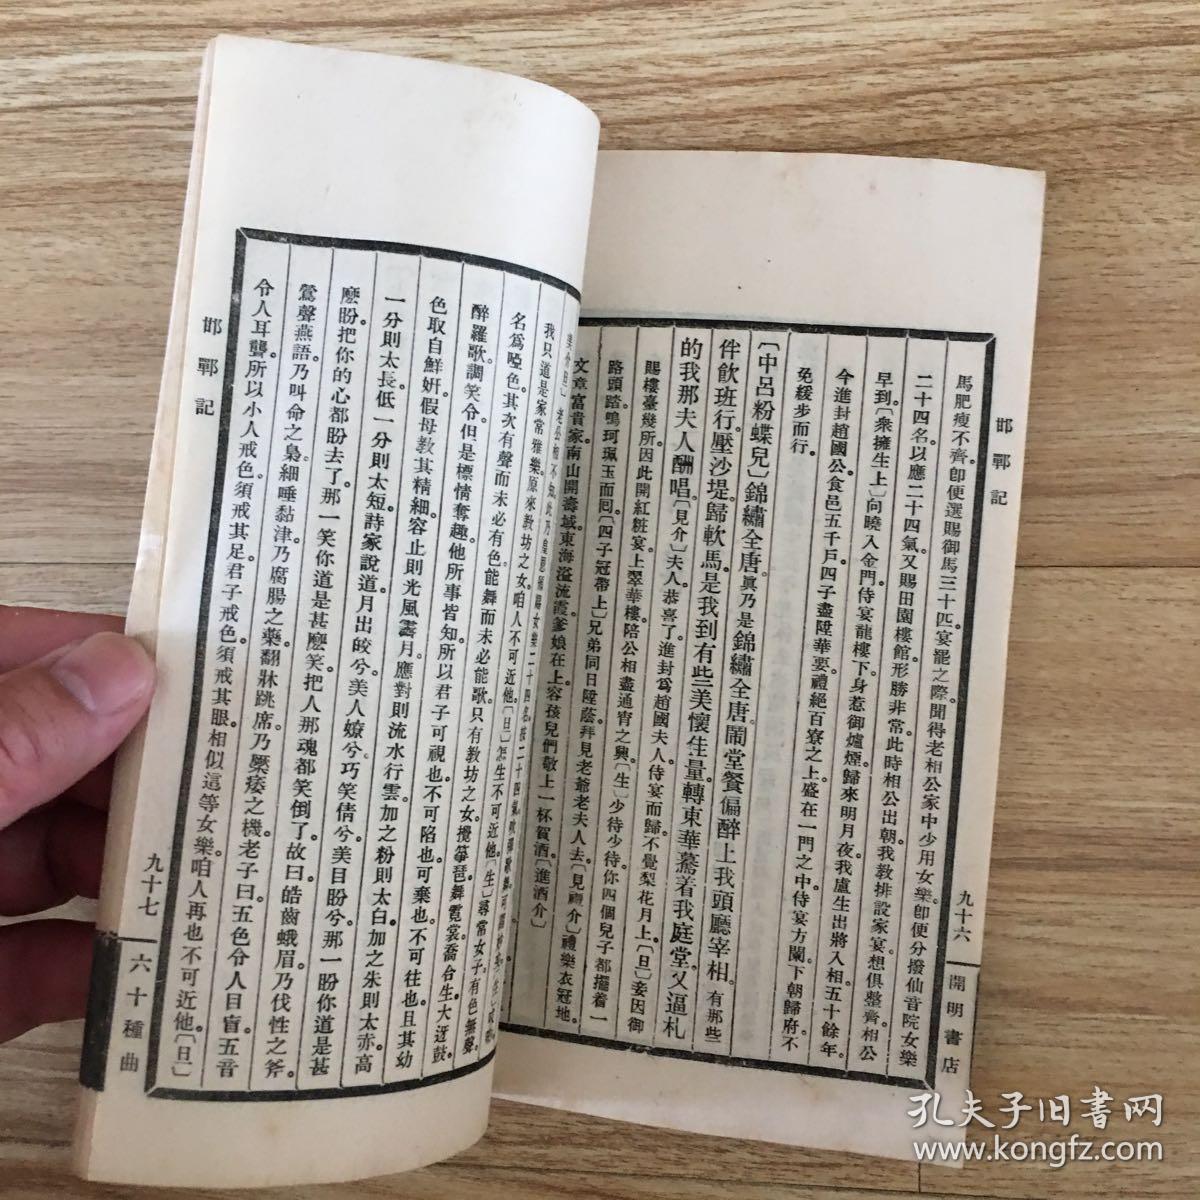 邯鄲記
九十六
開明書店
馬肥瘦不齊。卽便選賜御馬三十匹。宴罷之際。聞得老相公家中少用女樂。卽便分撥仙音院女樂
二十四名。以應二十四氣。又賜田園樓館。形勝非常。此時相公出朝。我教排設家宴。想俱整齊。相公
早到。〔衆擁生上〕向曉入金門。侍宴龍樓下。身惹御爐煙。歸來明月夜。我盧生出將入相。五十餘年。
今進封趙國公。食邑五千戶。四子盡陞華要。禮絕百寮之上。盛在一門之中。侍宴方闌。下朝歸府。不
免緩步而行。
〔中呂粉蝶兒〕錦繡全唐。眞乃是錦繡全唐。鬧堂餐偏醉上我頭廳宰相。有那些
伴飲班行。壓沙堤。歸軟馬。是我到有些美懷佳量。轉東華驀着我庭堂。又逼札
的我那夫人酬唱。〔見介〕夫人。恭喜了。進封爲趙國夫人。侍宴而歸。不覺梨花月上。〔旦〕妾因御
賜樓臺幾所。因此開紅粧宴上翠華樓。陪公相盡通宵之興。〔生〕少待少待。你四個兒子都擺着一
路頭踏。鳴珂珮玉而囘。〔四子冠帶上〕兄弟同日陞蔭。拜見老爺老夫人去。〔見禮介〕禮樂衣冠地。
文章富貴家。南山開壽域。東海溢流霞。爹娘在上。容孩兒們敬上一杯賀酒。〔進酒介〕
老公相不知。此乃皇恩欽賜女樂二十四名。按二十四氣。吹彈歌舞。可
我只道是家常雅樂。原來教坊之女。咱人不可近他。〔旦〕怎生不可近他。〔生〕尋常女子。有色無聲。
名爲啞色。其次有聲而未必有色。能舞而未必能歌。只有教坊之女。攪箏琶。舞霓裳。喬合生。大迓鼓。
醉羅歌。調笑令。但是標情奪趣。他所事皆知。所以君子可視也不可陷也。可棄也。不可往也。且其幼
色取自鮮姸。假母教其精細。容止則光風霽月。應對則流水行雲。加之粉則太白。加之朱則太赤。高
一分則太長。低一分則太短。詩家說道。月出皎兮。美人嫽兮。巧笑倩兮。美目盼兮。那一盼你道是甚
麽盼。把你的心都盼去了。那一笑你道是甚麽笑。把人那魂都笑倒了。故曰皓齒蛾眉。乃伐性之斧。
鶯聲燕語。乃叫命之梟。細唾黏津。乃腐腸之藥。翻牀跳席。乃橜痿之機。老子曰。五色令人目盲。五音
令人耳聾。所以小人戒色。須戒其足。君子戒色。須戒其眼。相似這等女樂。咱人再也不可近他。〔旦〕
邯鄲記
九十七
六十種曲
孔夫子旧書网
www.kongfz.com